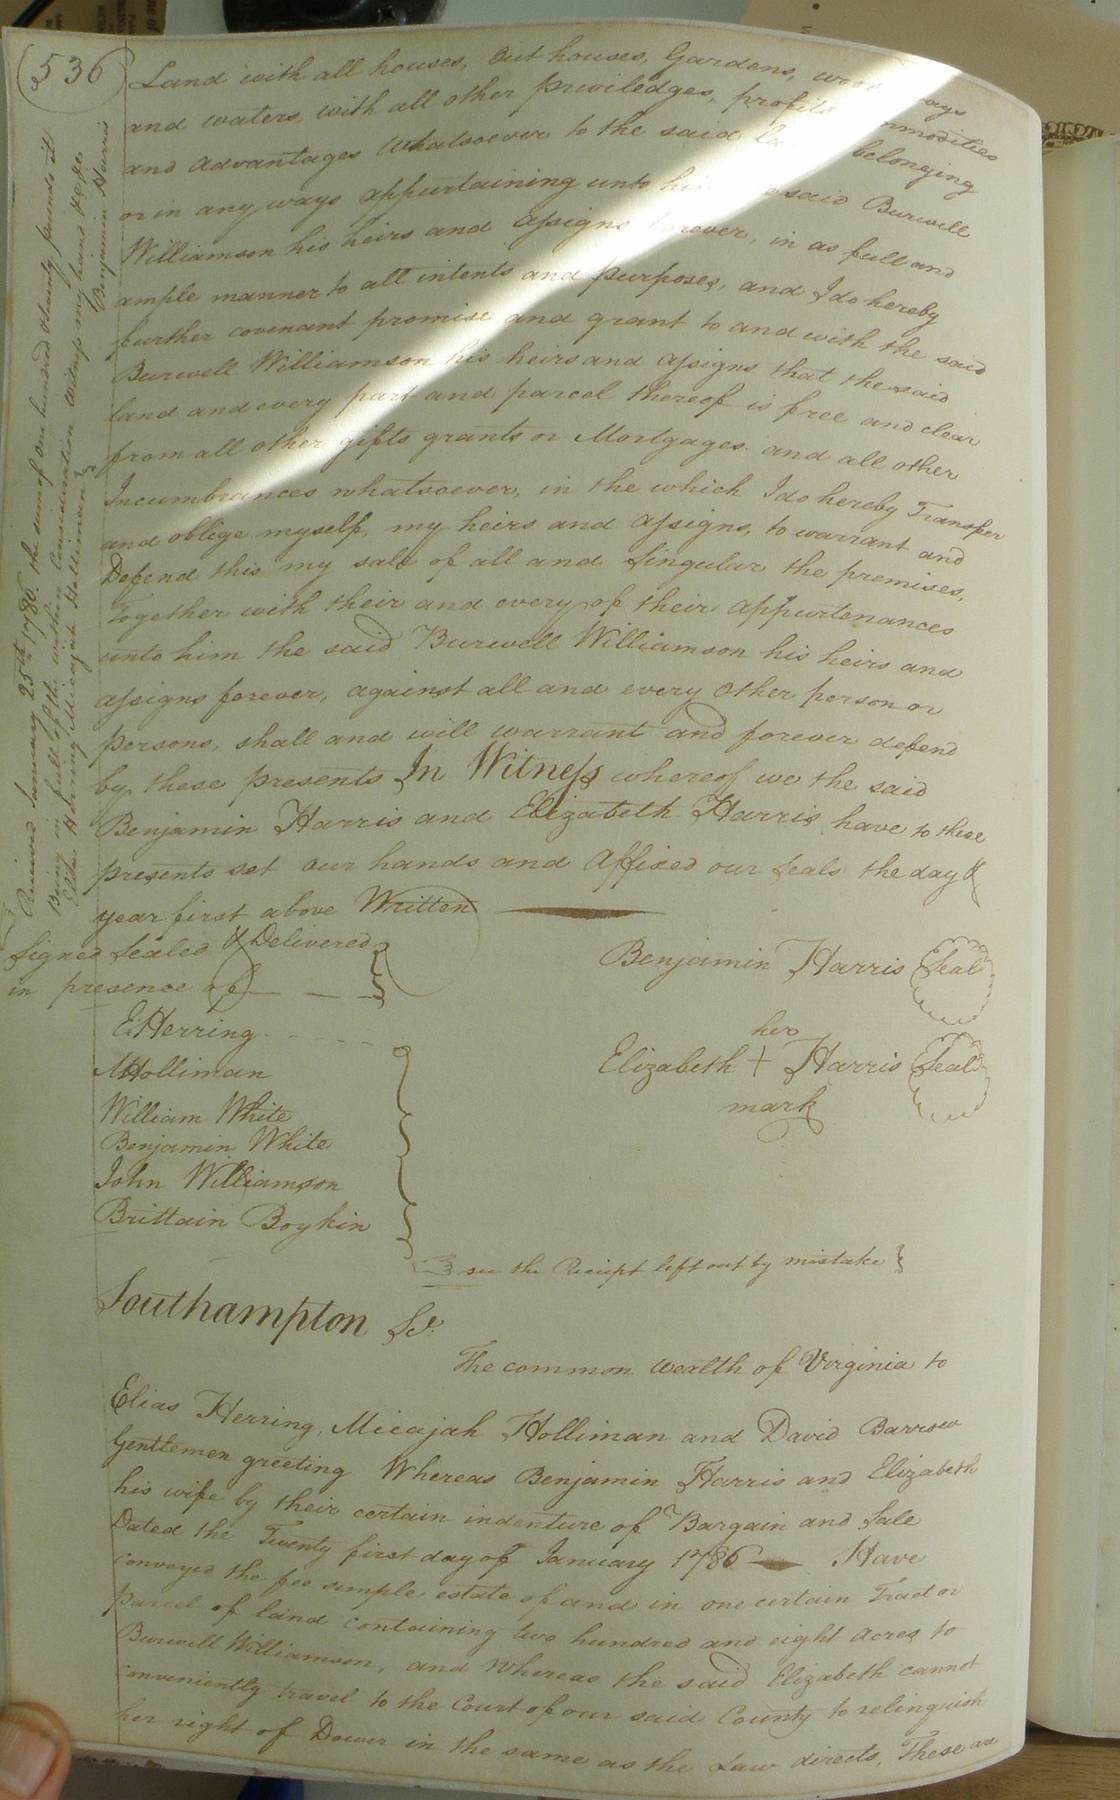 536
Land with all houses, Out houses, Gardens, woods ways
and waters, with all other priviledges, profits commodities
and advantages Whatsoever to the said belonging
or in any ways appurtaining unto him said Burwell
Williamson his heirs and assigns forever, in as full and
ample manner to all intents and purposes, and I do hereby
further covenant promise and grant to and with the said
Burwell Williamson his heirs and assigns that the said
land and every part and parcel thereof is free and clear
from all other gifts grants or Mortgages. and all other
Incumbrances whatsoever, in the which I do hereby Transfer
and oblige myself, my heirs and assigns, to warrant and
Defend this my sale of all and Singular the premises,
Together with their and every of their appurtenances
unto him the said Burwell Williamson his heirs and
assigns forever, against all and every other person or
persons, shall and will warrant and forever defend
by these presents In Witness whereof we the said
Benjamin Harris and Elizabeth Harris have to these
presents set our hands and Affixed our Seals the day &
year first above Written
Signed Sealed & Delivered
in presence of
E. Herring
M Holliman
William White
Benjamin White
John Williamson
Brittain Boykin
Benjamin Harris Seal
her
Elizabeth + Harris Seal
mark
see the Receipt left out by mistake
Southampton Sc.
The common wealth of Virginia to
Elias Herring, Micajah Holliman and David Barrow
Gentlemen greeting Whereas Benjamin Harris and Elizabeth
his wife by their certain indenture of Bargain and Sale
Dated the Twenty first day of January 1786 Have
conveyed the fee simple estate of and in one certain Tract or
parcel of land containing two hundred and eight acres to
Burwell Williamson, and Whereas the said Elizabeth cannot
conveniently travel to the Court of our said County to relinquish
her right of Dower in the same as the Law directs, These are
Received January 25th 1786 the sum of one hundred & twenty pounds it
Being in full of the within Consideration Witness my hand
Elias Herring Micajah Holliman Benjamin Harris